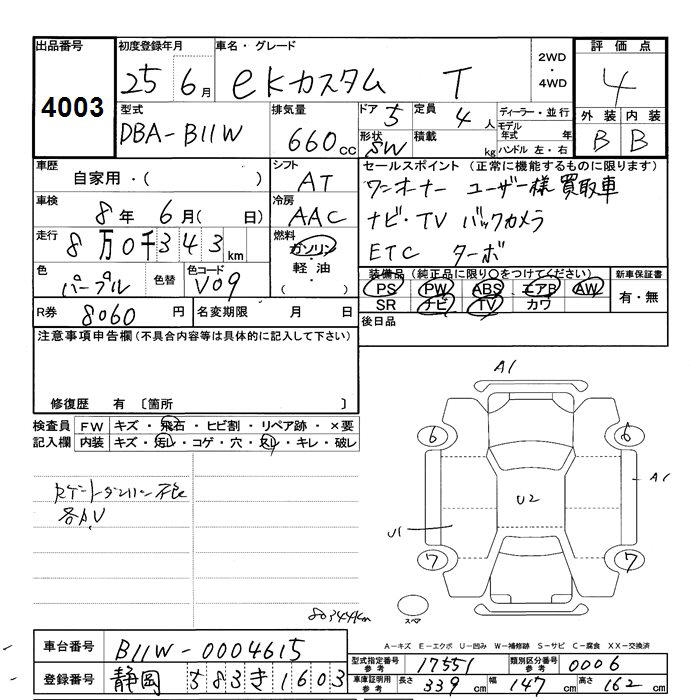 出品番号 初度登録年月 車名・グレード 評価点
4003 25 6月 eKカスタム T 2WD・4WD 4
型式 排気量 ドア 5 定員 4人 ディーラー・並行 外装 内装
DBA-B11W 660cc 形状 SW 積載 kg モデル年式 年 ハンドル 左・右 B B
車歴 自家用・( ) シフト AT セールスポイント (正常に機能するものに限ります)
車検 8年 6月( 日) 冷房 AAC ワンオーナー ユーザー様買取車
走行 8万0千343km 燃料 ガソリン・軽油・( ) ナビ・TV バックカメラ
ETC ターボ
色 パープル 色替 色コード V09 装備品 (純正品に限り○をつけてください) 新車保証書
PS PW ABS エアB AW 有・無
SR ナビ TV カワ
R券 8060円 名変期限 月 日 後日品
注意事項申告欄 (不具合内容等は具体的に記入して下さい)
修復歴 有 〔箇所 〕
検査員 FW キズ・飛石・ヒビ割・リペア跡・×要
記入欄 内装 キズ・汚レ・コゲ・穴・スレ・キレ・破レ
A1
6 6
A1
U2
各A.U
U1
7 7
80344km
スペア
A-キズ E-エクボ U-凹み W-補修跡 S-サビ C-腐食 XX-交換済
車台番号 B11W-0004615
登録番号 静岡 583 き 1603
型式指定番号 参考 17551 類別区分番号 参考 0006
車庫証明用 参考 長さ 339cm 幅 147cm 高さ 162cm